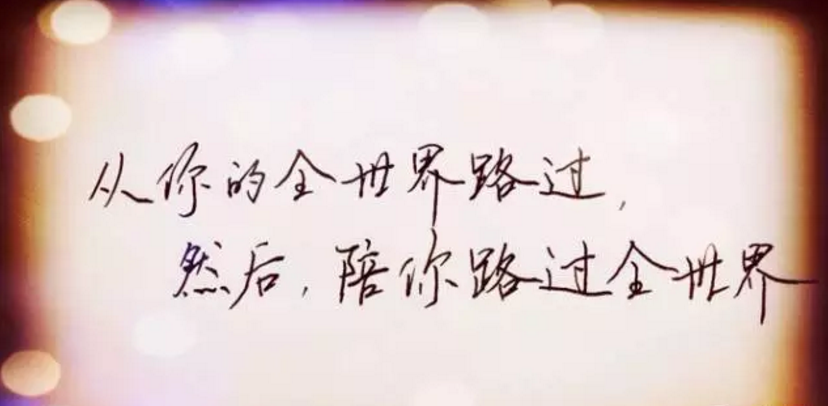 从你的全世界路过,
然后,陪你路过全世界